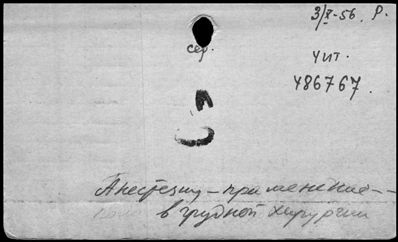 3/X-56. Р.
сер.
чит.
486767.
Анестезия - применение -
в грудной хирургии